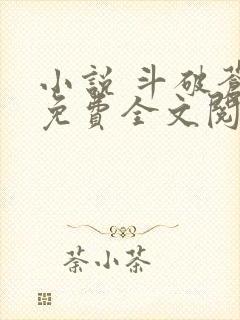 小說 斗破蒼
免費全文閱
茶小茶